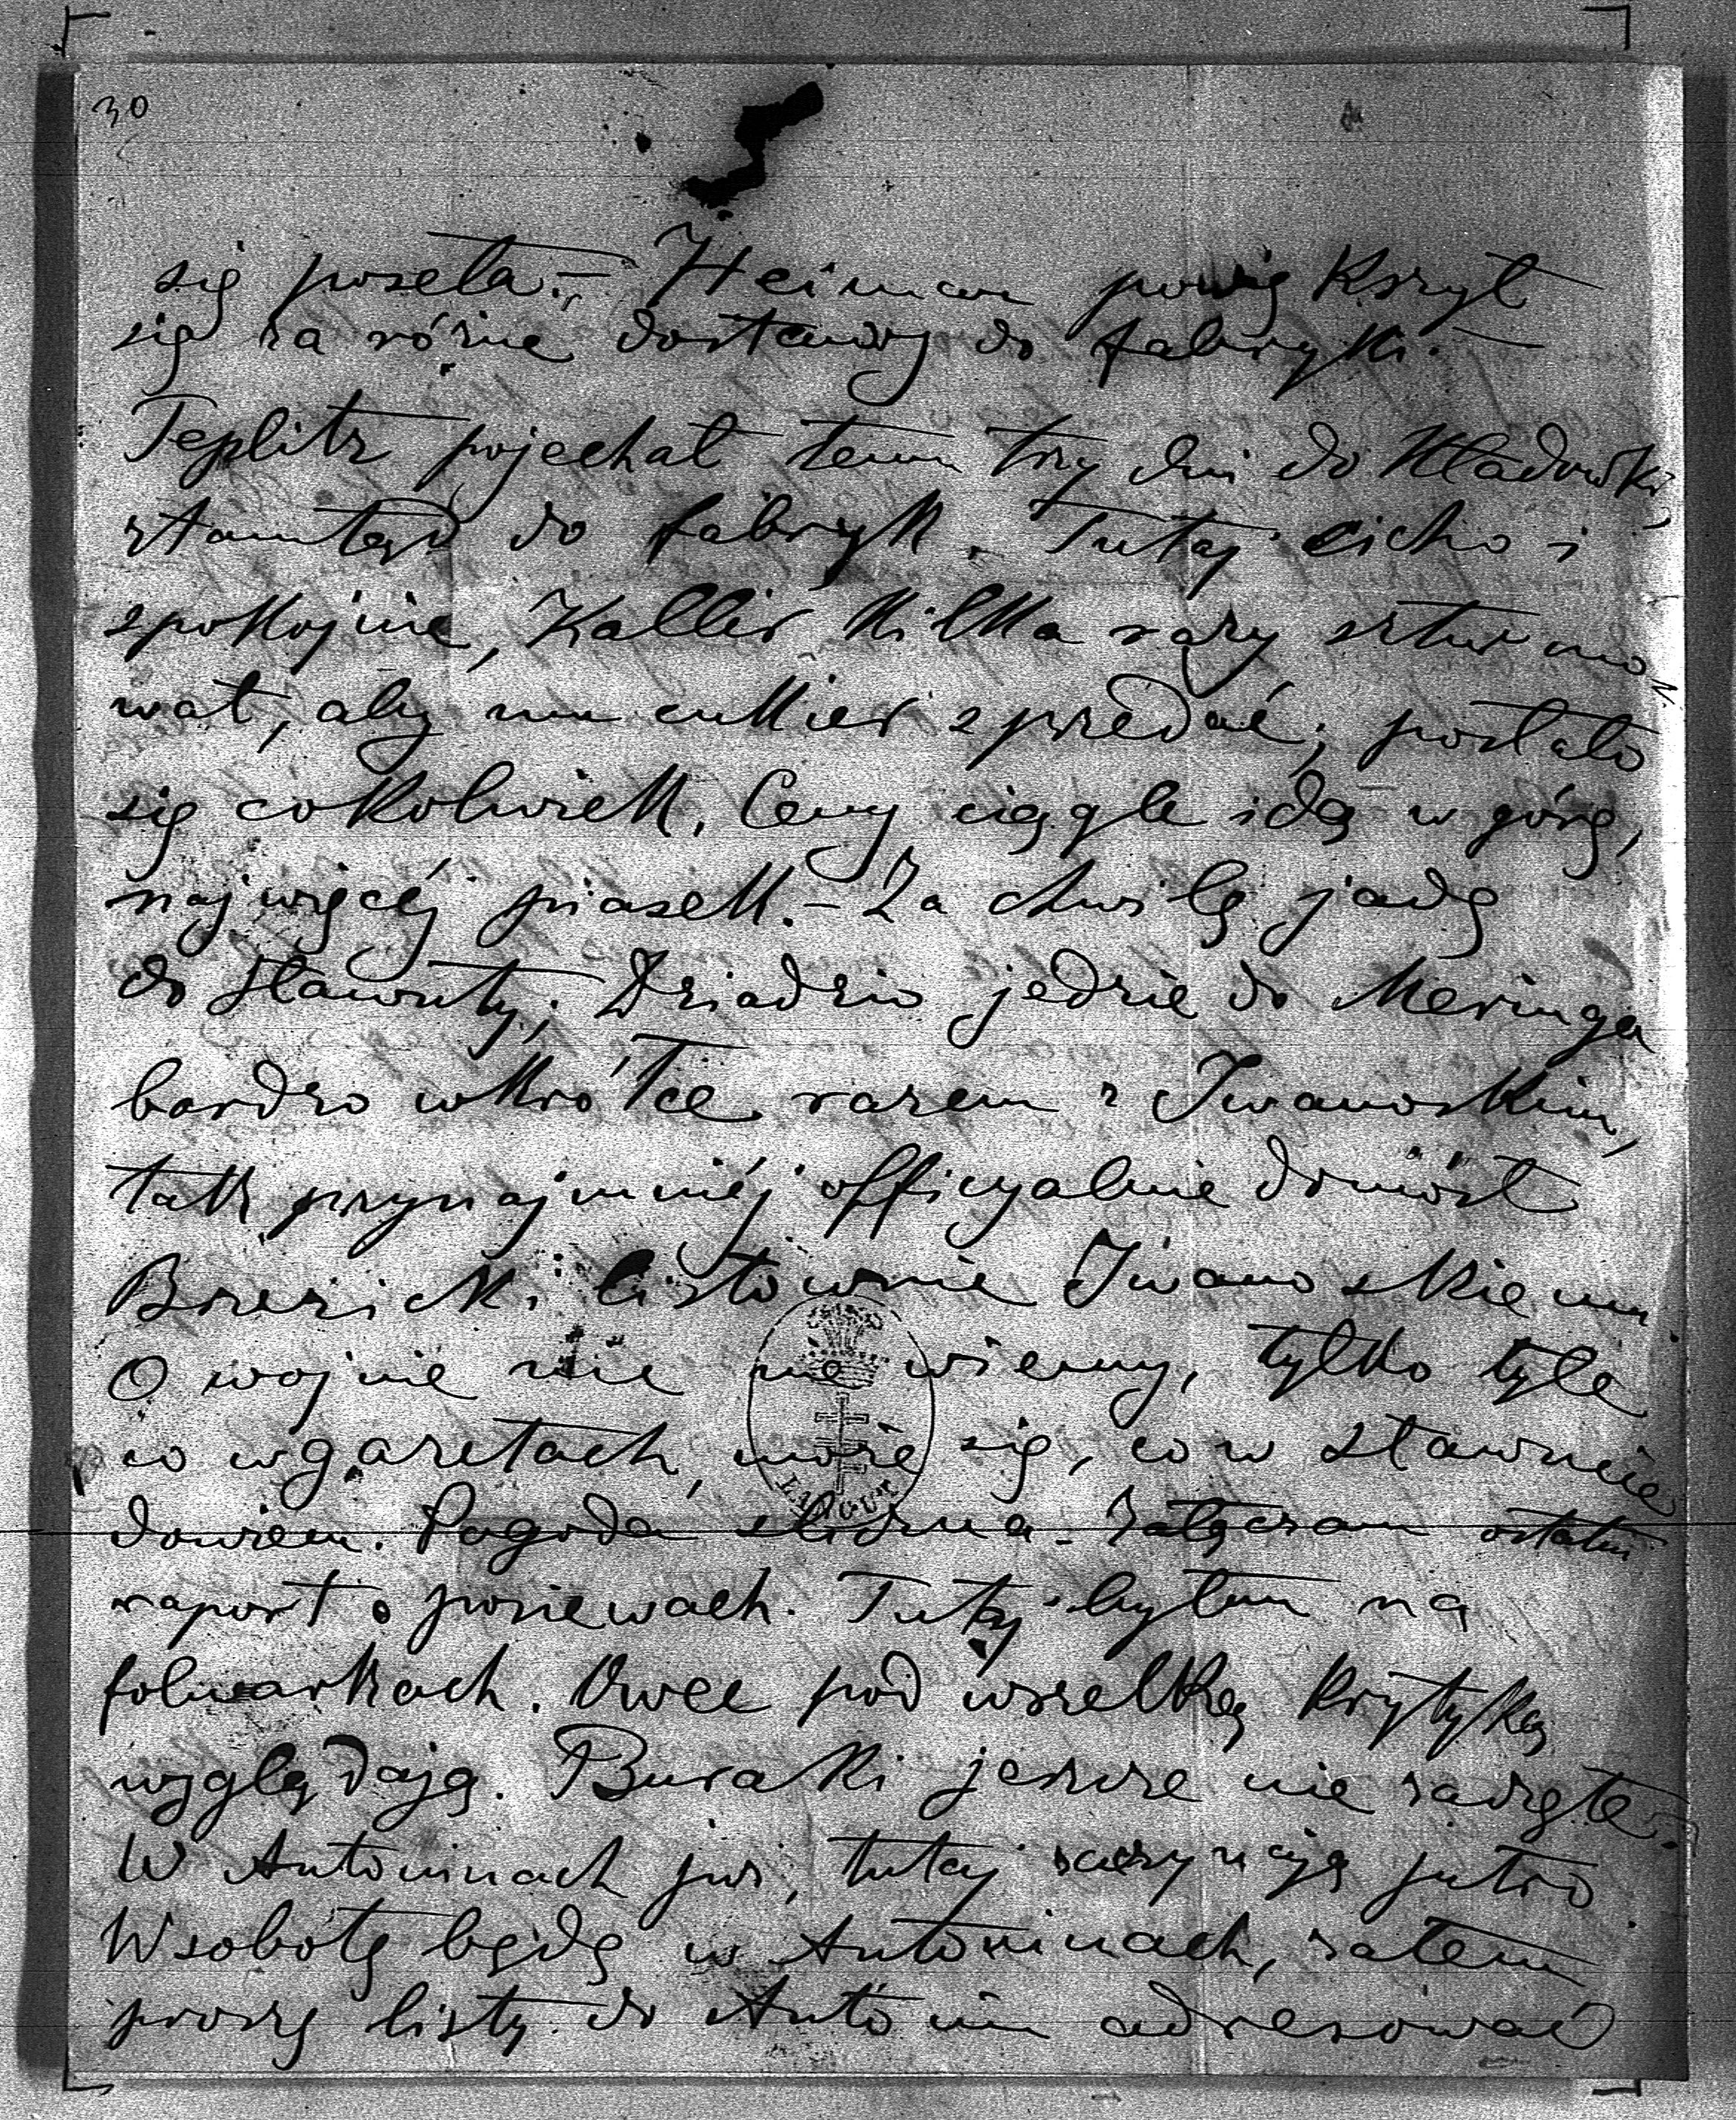 30
się poseła. — Heiman powiększył
się za różne dostawy do fabryki. —
Teplitz pojechał temu trzy dni do Kładówki,
ztamtąd do fabryk. Tutaj cicho i
spokojnie, Kaller kilka razy szturmo
wał, aby mu cukier sprzedać; posłało
się cokolwiek. Ceny ciągle idą w górę,
najwięcéj piasek. — Za chwilę jadę
do Sławuty; Dziadzio jedzie do Meringa
bardzo wkrótce razem z Iwanoskim,
tak przynajmniéj officyalnie doniósł
Brzezicki listownie Iwanoskiemu.
O wojnie nic nie wiemy, tylko tyle
co w gazetach, może się, co w Sławucie
dowiem. Pogoda śliczna. Załączam ostatni
raport o posiewach. Tutaj byłem na
folwarkach. Owce pod wszelką krytyką
wyglądają. Buraki jeszcze nie zaczęte.
W Antoninach już, tutaj zaczynają jutro
W sobotę będę w Antoninach, zatem
proszę listy do Antonin adresować
ŁAŃCUT